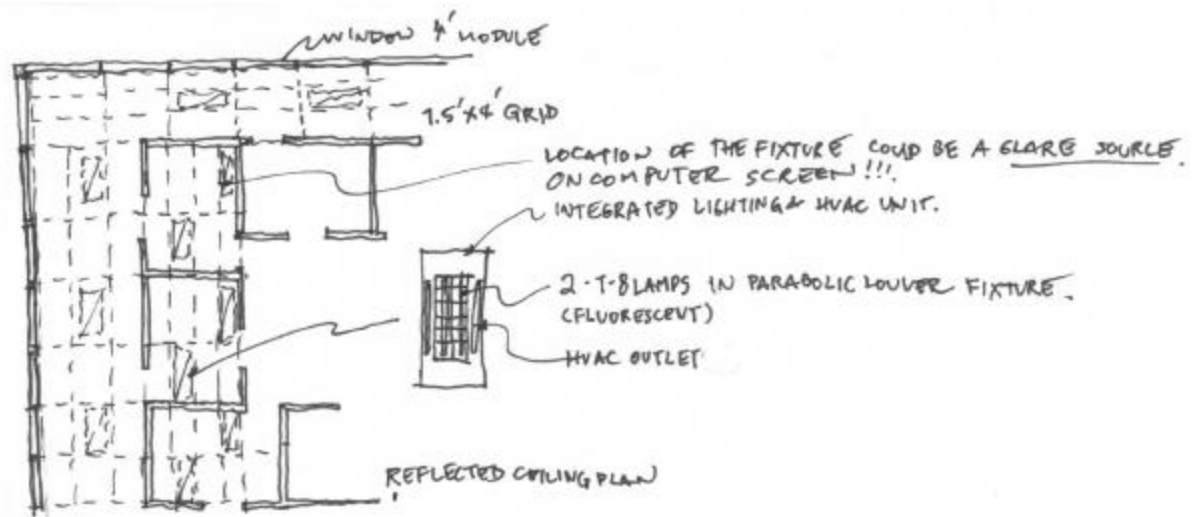 WINDOW 4' MODULE
1.5'X4' GRID
LOCATION OF THE FIXTURE COULD BE A GLARE SOURCE.
ON COMPUTER SCREEN!!!.
INTEGRATED LIGHTING & HVAC UNIT.
2-T-8 LAMPS IN PARABOLIC LOUVER FIXTURE.
(FLUORESCENT)
HVAC OUTLET
REFLECTED CEILING PLAN